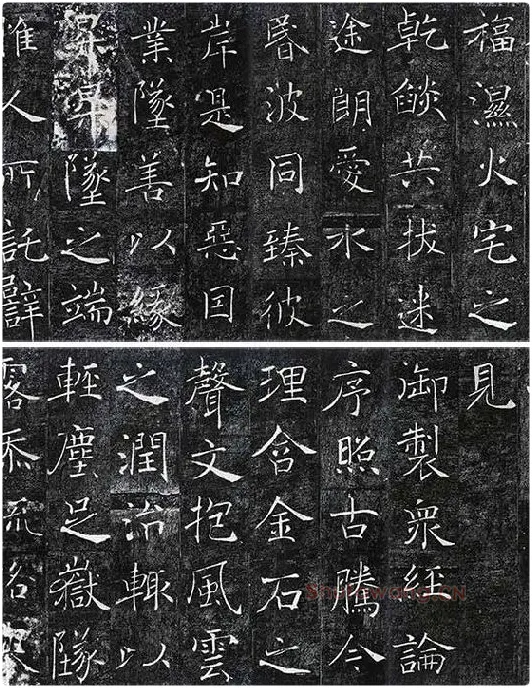 福濕火宅之
乾燄共拔迷
途朗愛水之
昬波同臻彼
岸是知惡因
業墜善以緣
昇昇墜之端
惟人所託譬
見
御製衆經論
序照古騰今
理含金石之
聲文抱風雲
之潤治輙以
輕塵足嶽墜
露添流略